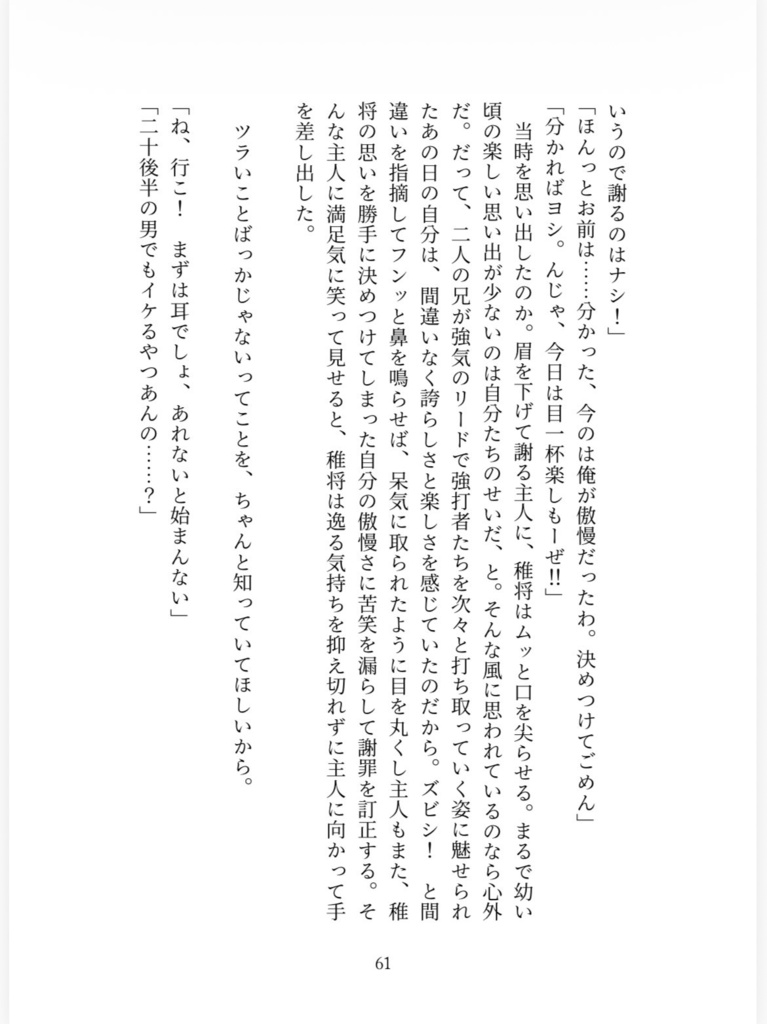 いうので謝るのはナシ！」
「ほんっとお前は……分かった、今のは俺が傲慢だったわ。決めつけてごめん」
「分かればヨシ。んじゃ、今日は目一杯楽しもーぜ!!」
　当時を思い出したのか。眉を下げて謝る主人に、稚将はムッと口を尖らせる。まるで幼い
頃の楽しい思い出が少ないのは自分たちのせいだ、と。そんな風に思われているのなら心外
だ。だって、二人の兄が強気のリードで強打者たちを次々と打ち取っていく姿に魅せられ
たあの日の自分は、間違いなく誇らしさと楽しさを感じていたのだから。ズビシ！　と間
違いを指摘してフンッと鼻を鳴らせば、呆気に取られたように目を丸くし主人もまた、稚
将の思いを勝手に決めつけてしまった自分の傲慢さに苦笑を漏らして謝罪を訂正する。そ
んな主人に満足気に笑って見せると、稚将は逸る気持ちを抑え切れずに主人に向かって手
を差し出した。
　ツラいことばっかじゃないってことを、ちゃんと知っていてほしいから。
「ね、行こ！　まずは耳でしょ、あれないと始まんない」
「二十後半の男でもイケるやつあんの……？」
61